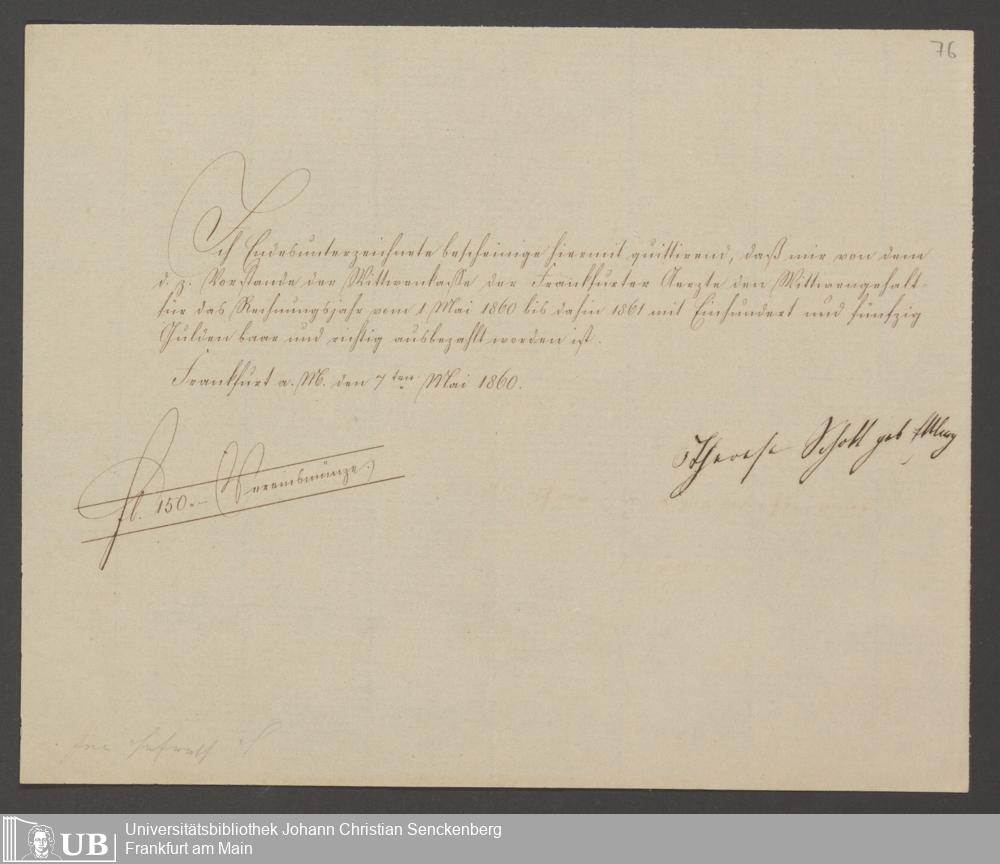 76
Ich Endesunterzeichnete bescheinige hiermit quittirend, daß mir von dem
d. z. Vorstande der Wittwenkasse der Frankfurter Aerzte den Wittwengehalt
für das Rechnungsjahr vom 1 Mai 1860 bis dahin 1861 mit Einhundert und fünfzig
Gulden baar und richtig ausbezahlt worden ist.
Frankfurt a. M. den 7ten Mai 1860.
Therese Schott geb
fl. 150.— (Vereinsmünze.)
UB
Universitätsbibliothek Johann Christian Senckenberg
Frankfurt am Main